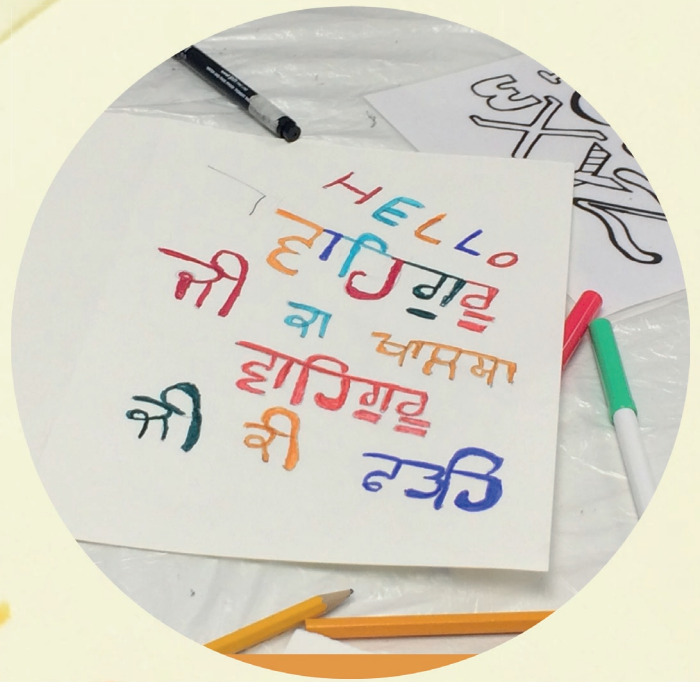 HELLO
ਵਾਹਿਗੁਰੂ
ਜੀ ਕਾ ਖਾਲਸਾ
ਵਾਹਿਗੁਰੂ
ਜੀ ਕੀ ਫਤਹਿ